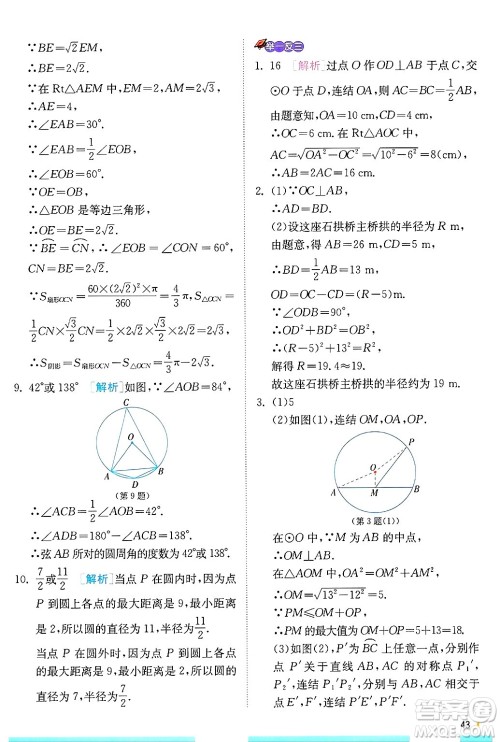 ∵BE=√2EM,
∴BE=2√2.
∵在 Rt△AEM 中,EM=2,
∴BE=2√2.
∴∠EAB=30°.
∵∠EAB=1/2∠EOB,
∴∠EOB=60°.
∵OE=OB,
∴△EOB 是等边三角形,
∴OE=BE=2√2.
∵BE⌒=CN⌒,∴∠CON=∠BOE=60°,
CN=BE=2√2.
∵S扇形OCN=60×(2√2)²×π/360=4/3π,S△OCN=
1/2CN×√3/2CN=1/2×2√2×√3/2×2√2=2√3,
∴S阴影=S扇形OCN−S△OCN=4/3π−2√3.
9. 42°或 138° [解析]如图,∵∠AOB=84°,
C
O
A
B
D
(第 9 题)
∴∠ACB=1/2∠AOB=42°,
∴∠ADB=180°−∠ACB=138°.
∴弦 AB 所对的圆周角的度数为 42°或 138°.
10. 7/2或11/2 [解析]当点 P 在圆内时,因为点
P 到圆上各点的最大距离是 9,最小距离
是 2,所以圆的直径为 11,半径为11/2.
当点 P 在圆外时,因为点 P 到圆上各点
的最大距离是 9,最小距离是 2,所以圆的
直径为 7,半径为7/2.
举一反三
1. 16 [解析]过点 O 作 OD⊥AB 于点 C,交
⊙O 于点 D,连结 OA,则 AC=BC=1/2AB,
由题意,得 OA=10 cm,CD=4 cm,
∴OC=6 cm,在 Rt△AOC 中,
AC=√OA²−OC²=√10²−6²=8(cm),
∴AB=2AC=16 cm.
2. (1)∵OC⊥AB,
∴AD=BD.
(2)设这座石拱桥主桥拱的半径为 R m,
由题意,得 AB=26 m,CD=5 m,
∴BD=1/2AB=13 m,
∴OD=(R−5)m.
∵∠ODB=90°,
∴OD²+BD²=OB²,
∴(R−5)²+13²=R²,
解得 R=19.4≈19.
故这座石拱桥主桥拱的半径约为 19 m.
3. (1)5
(2)如图,连结 OM,OA,OP.
P
O
A
M
B
(第 3 题(1))
∵在⊙O 中,M 为 AB 的中点,
∴OM⊥AB,AM=1/2AB=12.
在△AOM 中,∠AMO=90°,
∴OM=√13²−12²=5.
∵PM≤OM+OP,
∴PM 的最大值为 OM+OP=5+13=18.
(3)如图(2),P′为 BC⌒ 上任意一点,分
别作点 P′关于直线 AB,AC 的对称点 P₁′,
P₂′,连结 P₁′P₂′,分别与 AB,AC 相交于
点 E′,F′,连结 P′E′,P′F′,
43